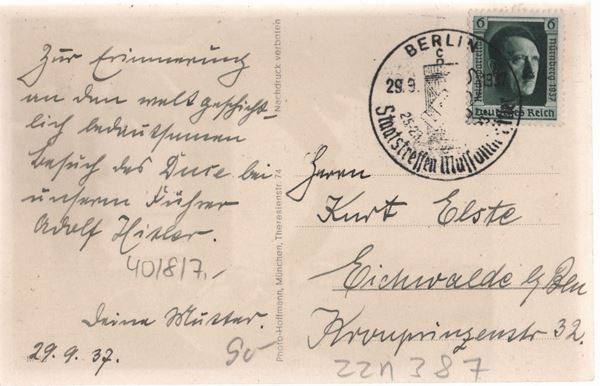 Zur Erinnerung
an den weltgeschicht-
lich bedeutsamen
Besuch des Duce bei
unserm Führer
Adolf Hitler.
401817,-
Deine Mutter.
29.9.37.
Nachdruck verboten
Photo-Hoffmann, München, Theresienstr. 74
BERLIN
29.9.
25-29.
Staatstreffen Mussolini
6 6
Reichsparteitag
Nürnberg 1937
Deutsches Reich
Herrn
Kurt Elste
Eichwalde b/Bln
Kronprinzenstr 32.
22n 387